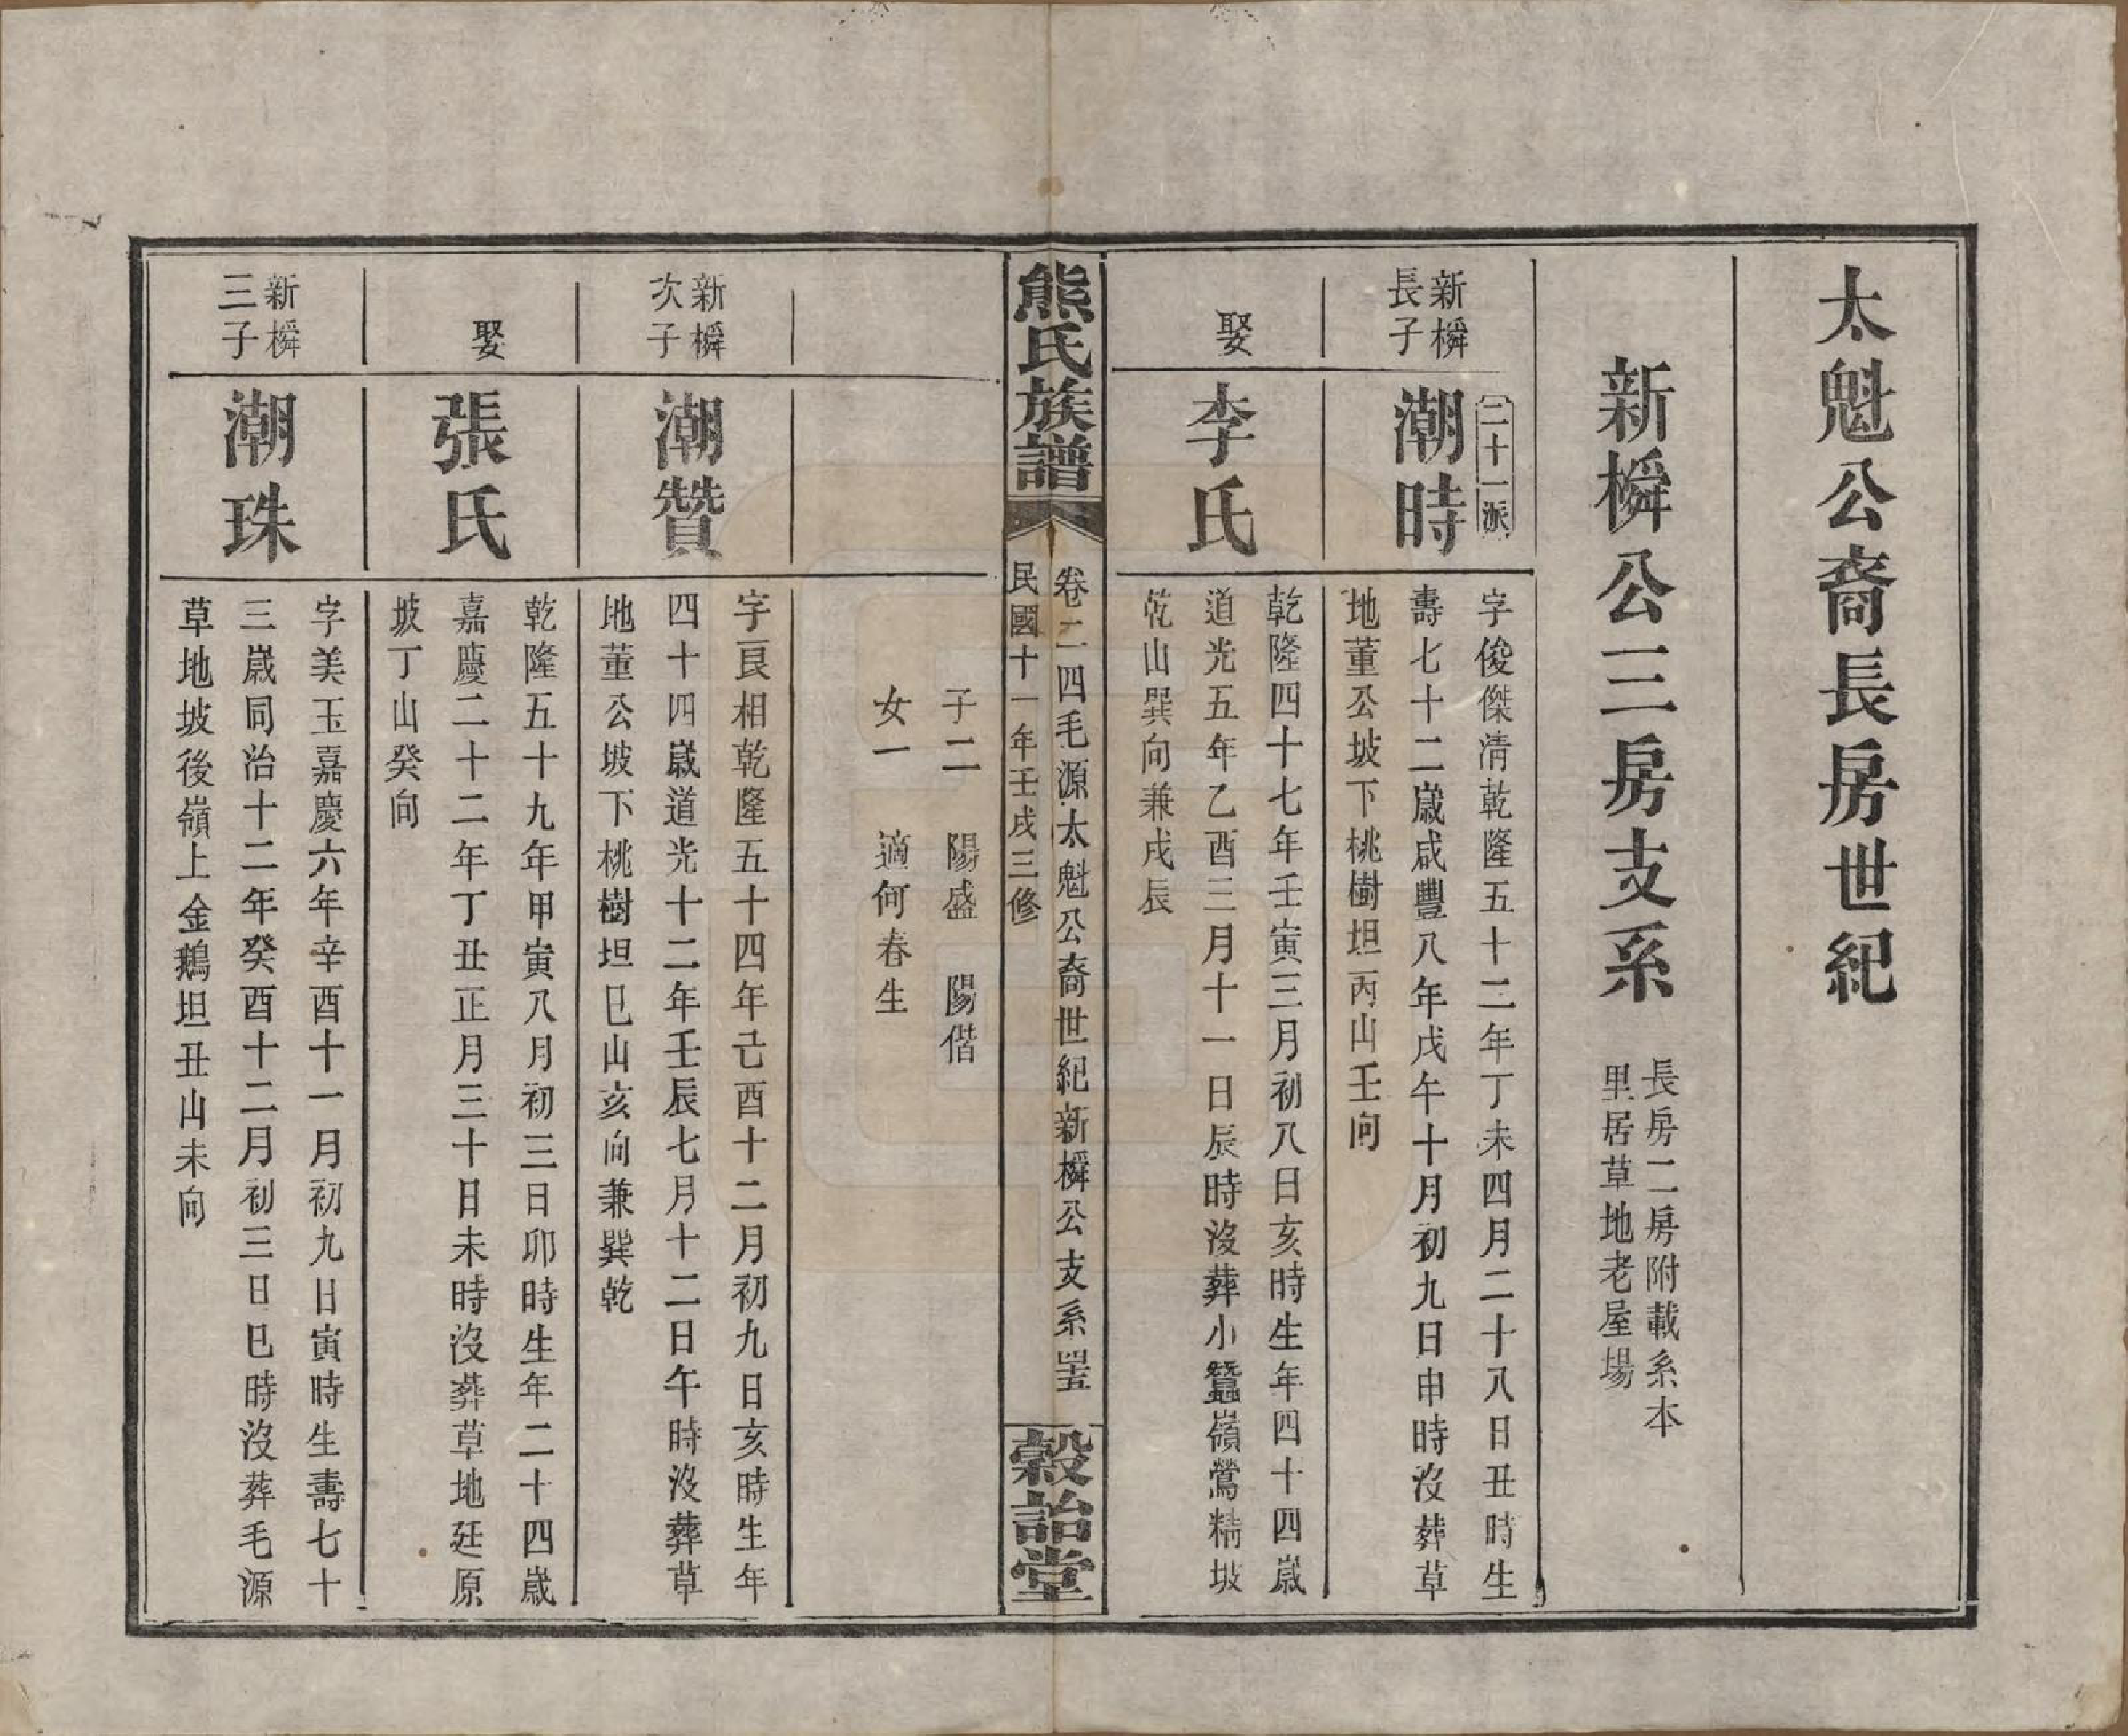 太魁公裔長房世紀
新橓公三房支系
長房二房附載系本
里居草地老屋場
新橓
長子
二十一派
潮時
字俊傑淸乾隆五十二年丁未四月二十八日丑時生
壽七十二歲咸豐八年戊午十月初九日申時沒葬草
地董公坡下桃樹坦丙山壬向
娶
李氏
乾隆四十七年壬寅三月初八日亥時生年四十四歲
道光五年乙酉三月十一日辰時沒葬小蠶嶺鶯精坡
乾山巽向兼戌辰
熊氏族譜
卷二四毛源太魁公裔世紀新橓公支系
民國十一年壬戌三修
穀詒堂
子二　陽盛　陽偕
女一　適何春生
新橓
次子
潮贊
字良相乾隆五十四年己酉十二月初九日亥時生年
四十四歲道光十二年壬辰七月十二日午時沒葬草
地董公坡下桃樹坦巳山亥向兼巽乾
娶
張氏
乾隆五十九年甲寅八月初三日卯時生年二十四歲
嘉慶二十二年丁丑正月三十日未時沒葬草地廷原
坡丁山癸向
新橓
三子
潮珠
字美玉嘉慶六年辛酉十一月初九日寅時生壽七十
三歲同治十二年癸酉十二月初三日巳時沒葬毛源
草地坡後嶺上金鵝坦丑山未向